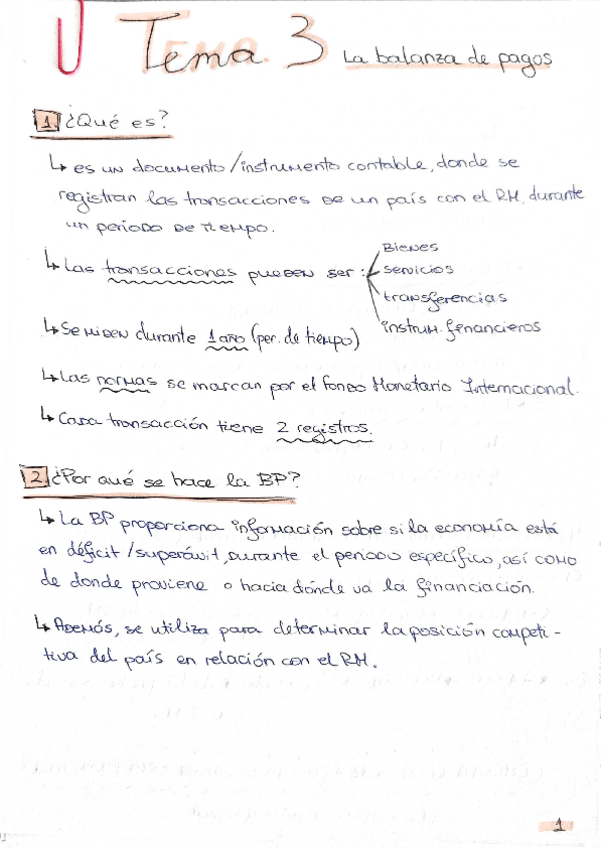 Tema 3 La balanza de pagos
1. ¿Qué es?
↳ es un documento/instrumento contable, donde se
registran las transacciones de un país con el RM, durante
un período de tiempo.
↳ Las transacciones pueden ser:
Bienes
servicios
transferencias
instrum. financieros
↳ Se miden durante 1 año (per. de tiempo)
↳ Las normas se marcan por el Fondo Monetario Internacional.
↳ Cada transacción tiene 2 registros.
2. ¿Por qué se hace la BP?
↳ La BP proporciona información sobre si la economía está
en déficit/superávit, durante el período específico, así como
de donde proviene o hacia dónde va la financiación.
↳ Además, se utiliza para determinar la posición competi-
tiva del país en relación con el RM.
1